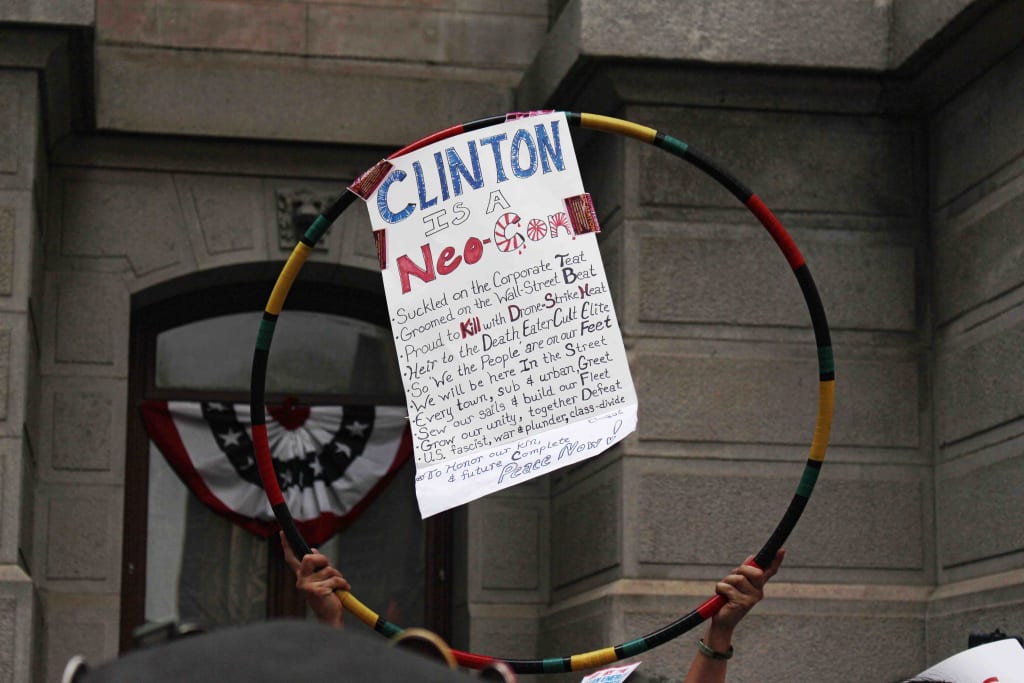 CLINTON
IS A
Neo-Con
·Suckled on the Corporate Teat
·Groomed on the Wall-Street Beat
·Proud to Kill with Drone-Strike Meat
·Heir to the Death Eater Cult Elite
·So 'We the People' are on our Feet
·We will be here In the Street
·Every town, sub & urban, Greet
·Sew our sails & build our Fleet
·Grow our unity, together Defeat
·U.S. fascist, war & plunder, class-divide
To Honor our kin,
& future Complete
Peace Now!